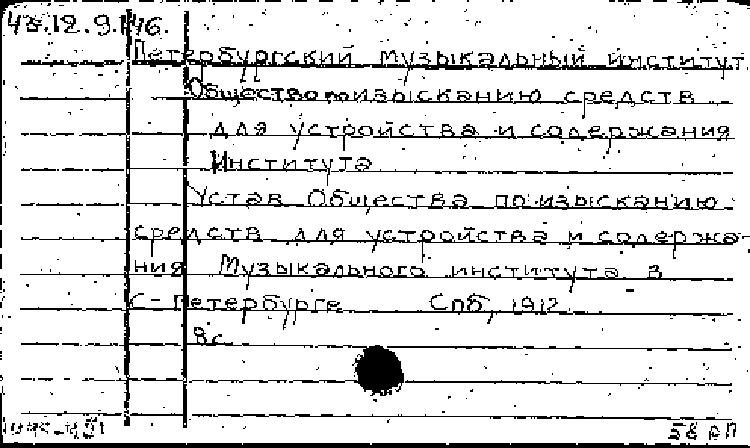 Петербургский музыкальный институт.
Общество по изысканию средств
для устройства и содержания
Института
Устав Общества по изысканию
средств для устройства и содержа-
ния Музыкального института в
С-Петербурге Спб, 1912
8 с